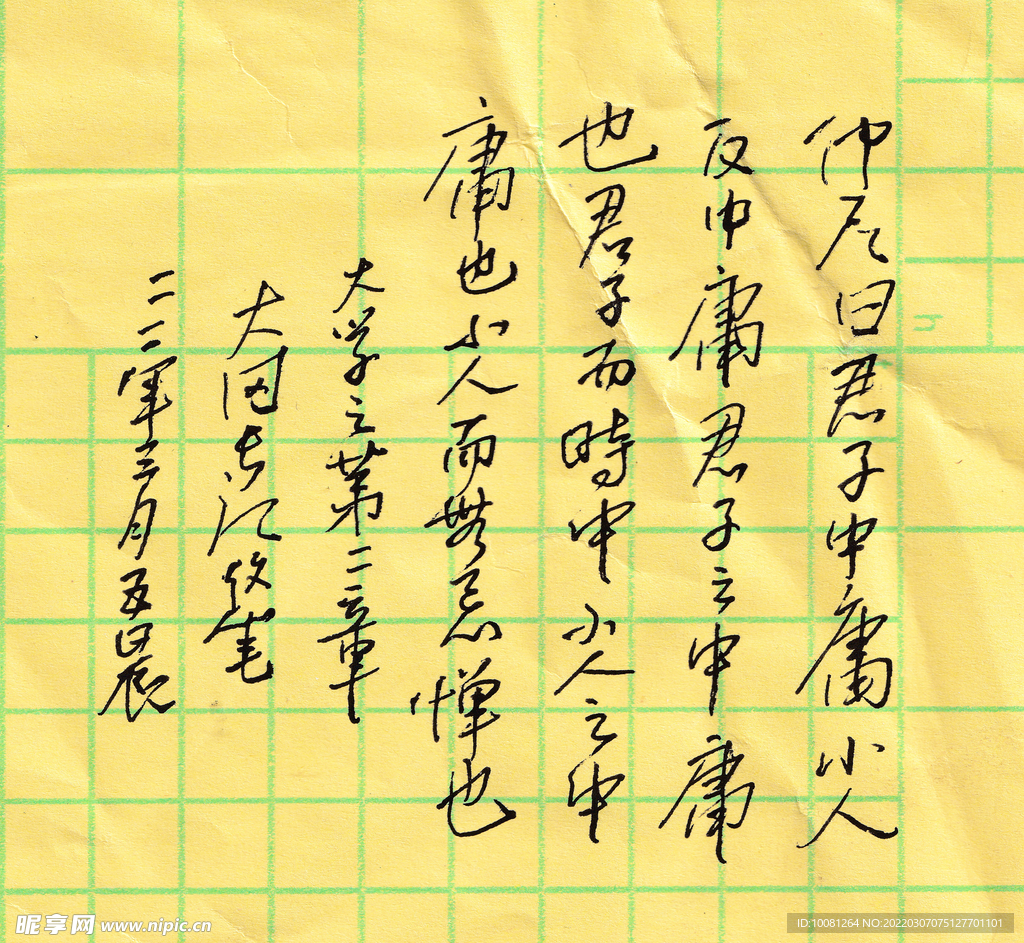 仲尼曰君子中庸小人
反中庸君子之中庸
也君子而時中小人之中
庸也小人而無忌憚也
大学之第二章
大江笔
二二年三月五日晨
昵享网 www.nipic.cn
ID:10081264 NO:20220307075127701101